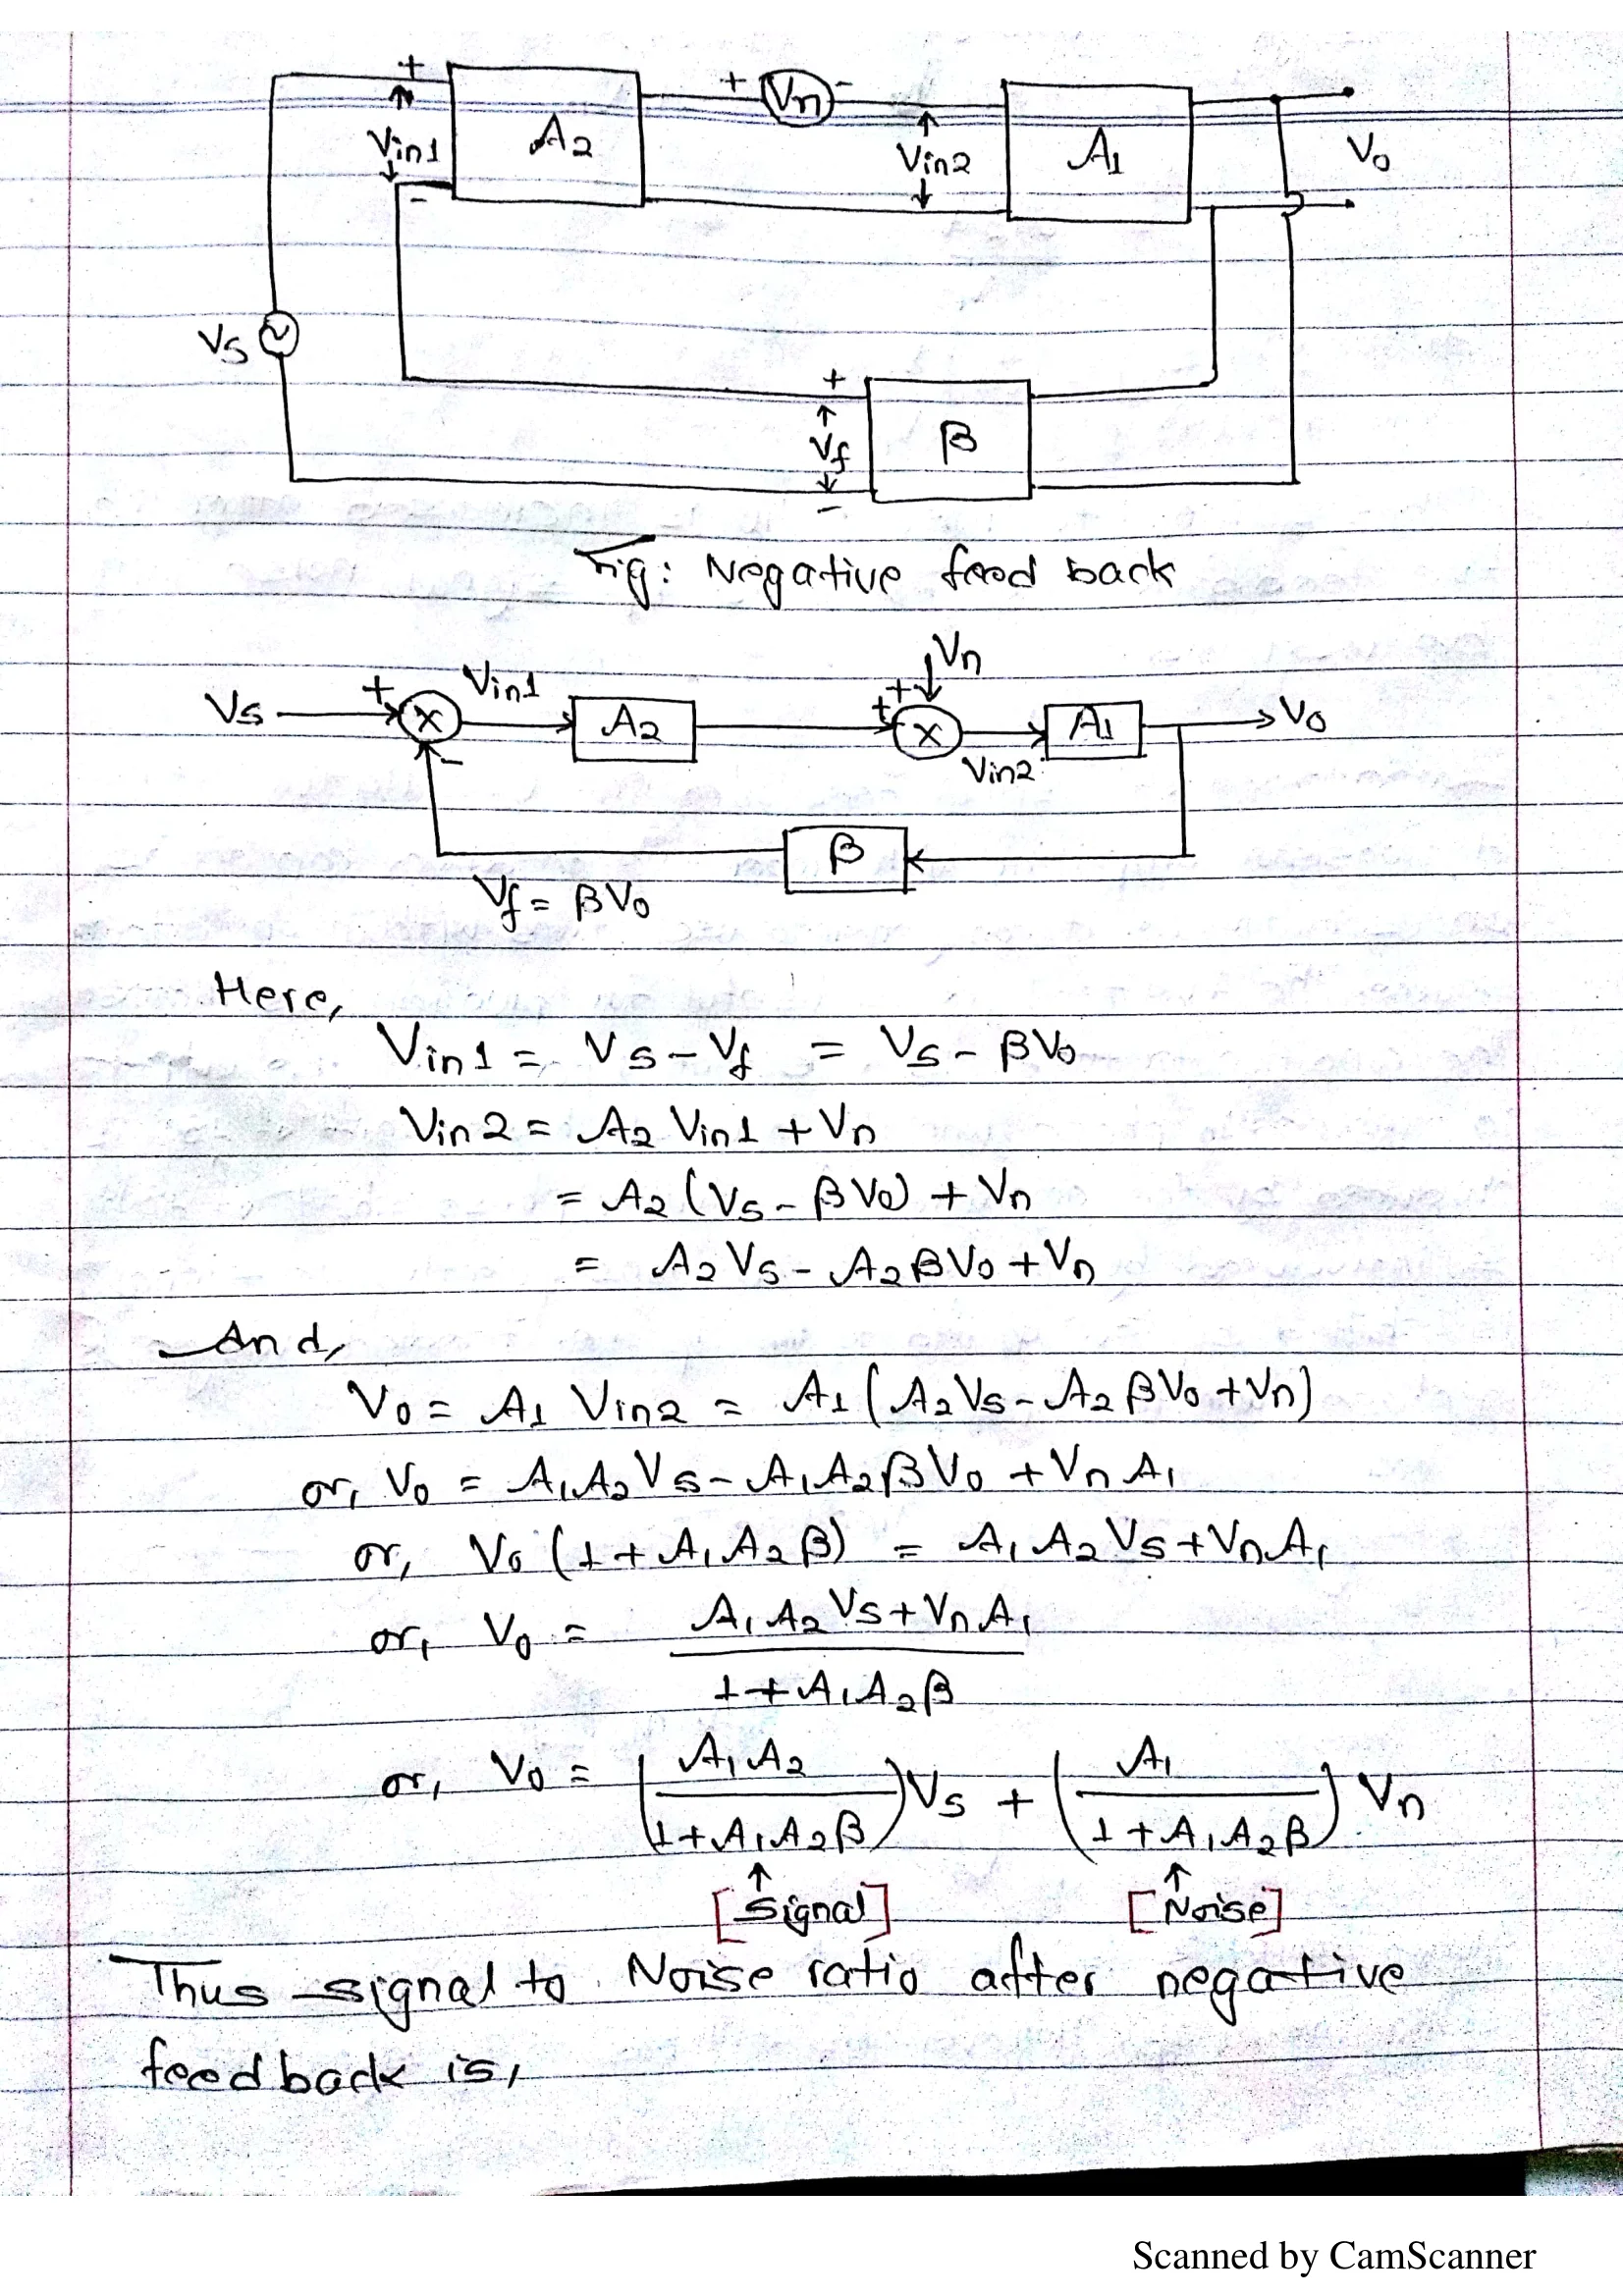 + + Vn -
Vin1 A2 Vin2 A1 Vo
-
Vs
+
Vf β
-
Fig: Negative feed back
Vn
Vs + Vin1 A2 + + A1 Vo
- Vin2
β
Vf = βVo
Here,
Vin1 = Vs - Vf = Vs - βVo
Vin2 = A2 Vin1 + Vn
= A2 (Vs - βVo) + Vn
= A2 Vs - A2βVo + Vn
And,
Vo = A1 Vin2 = A1 (A2Vs - A2 βVo + Vn)
or, Vo = A1A2Vs - A1A2βVo + Vn A1
or, Vo (1 + A1 A2 β) = A1 A2 Vs + VnA1
or, Vo = A1 A2 Vs + Vn A1
1 + A1A2β
or, Vo = (A1A2 / 1+A1A2β) Vs + (A1 / 1+A1A2β) Vn
↑ ↑
[Signal] [Noise]
Thus signal to Noise ratio after negative
feedback is,
Scanned by CamScanner